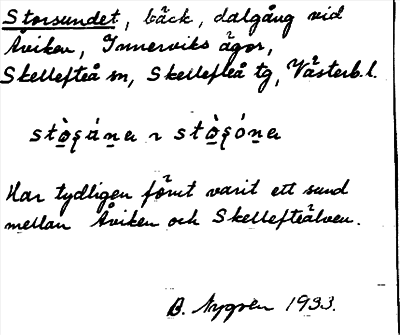 Storsundet, bäck, dalgång vid
Åviken, Innerviks ägor,
Skellefteå sn, Skellefteå tg, Västerb. l.
Har tydligen förut varit ett sund
mellan Åviken och Skellefteälven.
B. Nygren 1933.